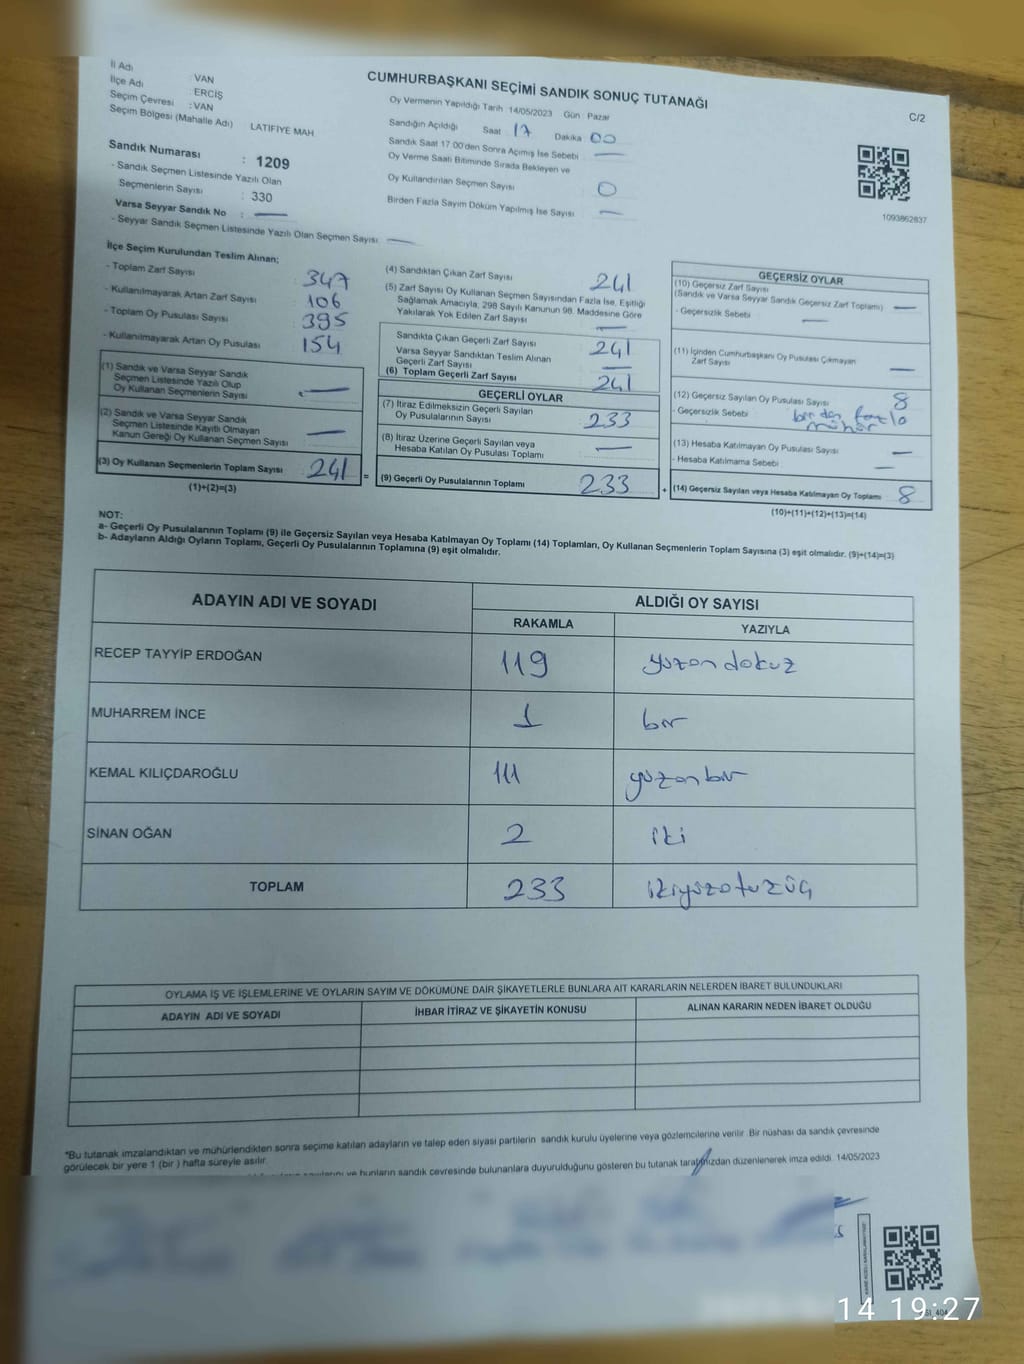 İl Adı
İlçe Adı : VAN
Seçim Çevresi : ERCİŞ
Seçim Bölgesi (Mahalle Adı) : VAN
LATIFIYE MAH
CUMHURBAŞKANI SEÇİMİ SANDIK SONUÇ TUTANAĞI
C/2
Oy Vermenin Yapıldığı Tarih 14/05/2023 Gün : Pazar
Sandığın Açıldığı Saat 17 Dakika 00
Sandık Saat 17 00'den Sonra Açımış İse Sebebi —
Oy Verme Saati Bitiminde Sırada Bekleyen ve
Oy Kullandırılan Seçmen Sayısı 0
Birden Fazla Sayım Döküm Yapılmış İse Sayısı —
1093862837
Sandık Numarası : 1209
- Sandık Seçmen Listesinde Yazılı Olan
Seçmenlerin Sayısı : 330
Varsa Seyyar Sandık No : —
- Seyyar Sandık Seçmen Listesinde Yazılı Olan Seçmen Sayısı: —
İlçe Seçim Kurulundan Teslim Alınan;
- Toplam Zarf Sayısı 347
- Kullanılmayarak Artan Zarf Sayısı 106
- Toplam Oy Pusulası Sayısı 395
- Kullanılmayarak Artan Oy Pusulası 154
(1) Sandık ve Varsa Seyyar Sandık
Seçmen Listesinde Yazılı Olup
Oy Kullanan Seçmenlerin Sayısı —
(2) Sandık ve Varsa Seyyar Sandık
Seçmen Listesinde Kayıtlı Olmayan
Kanun Gereği Oy Kullanan Seçmen Sayısı —
(3) Oy Kullanan Seçmenlerin Toplam Sayısı 241 =
(1)+(2)=(3)
(4) Sandıktan Çıkan Zarf Sayısı 241
(5) Zarf Sayısı Oy Kullanan Seçmen Sayısından Fazla İse, Eşitliği
Sağlamak Amacıyla, 298 Sayılı Kanunun 98. Maddesine Göre
Yakılarak Yok Edilen Zarf Sayısı —
Sandıkta Çıkan Geçerli Zarf Sayısı 241
Varsa Seyyar Sandıktan Teslim Alınan
Geçerli Zarf Sayısı —
(6) Toplam Geçerli Zarf Sayısı 241
GEÇERLİ OYLAR
(7) İtiraz Edilmeksizin Geçerli Sayılan
Oy Pusulalarının Sayısı 233
(8) İtiraz Üzerine Geçerli Sayılan veya
Hesaba Katılan Oy Pusulası Toplamı —
(9) Geçerli Oy Pusulalarının Toplamı 233 +
GEÇERSİZ OYLAR
(10) Geçersiz Zarf Sayısı
(Sandık ve Varsa Seyyar Sandık Geçersiz Zarf Toplamı) —
- Geçersizlik Sebebi —
(11) İçinden Cumhurbaşkanı Oy Pusulası Çıkmayan
Zarf Sayısı —
(12) Geçersiz Sayılan Oy Pusulası Sayısı 8
- Geçersizlik Sebebi birden fazla
mühür
(13) Hesaba Katılmayan Oy Pusulası Sayısı —
- Hesaba Katılmama Sebebi —
(14) Geçersiz Sayılan veya Hesaba Katılmayan Oy Toplamı 8
(10)+(11)+(12)+(13)=(14)
NOT:
a- Geçerli Oy Pusulalarının Toplamı (9) ile Geçersiz Sayılan veya Hesaba Katılmayan Oy Toplamı (14) Toplamları, Oy Kullanan Seçmenlerin Toplam Sayısına (3) eşit olmalıdır. (9)+(14)=(3)
b- Adayların Aldığı Oyların Toplamı, Geçerli Oy Pusulalarının Toplamına (9) eşit olmalıdır.
ADAYIN ADI VE SOYADI ALDIĞI OY SAYISI
RAKAMLA YAZIYLA
RECEP TAYYİP ERDOĞAN 119 yüzondokuz
MUHARREM İNCE 1 bir
KEMAL KILIÇDAROĞLU 111 yüzonbir
SİNAN OĞAN 2 iki
TOPLAM 233 ikiyüzotuzüç
OYLAMA İŞ VE İŞLEMLERİNE VE OYLARIN SAYIM VE DÖKÜMÜNE DAİR ŞİKAYETLERLE BUNLARA AİT KARARLARIN NELERDEN İBARET BULUNDUKLARI
ADAYIN ADI VE SOYADI İHBAR İTİRAZ VE ŞİKAYETİN KONUSU ALINAN KARARIN NEDEN İBARET OLDUĞU
*Bu tutanak imzalandıktan ve mühürlendikten sonra seçime katılan adayların ve talep eden siyasi partilerin sandık kurulu üyelerine veya gözlemcilerine verilir. Bir nüshası da sandık çevresinde
görülecek bir yere 1 (bir ) hafta süreyle asılır.
ve bunların sandık çevresinde bulunanlara duyurulduğunu gösteren bu tutanak tarafımızdan düzenlenerek imza edildi. 14/05/2023
14 19:27